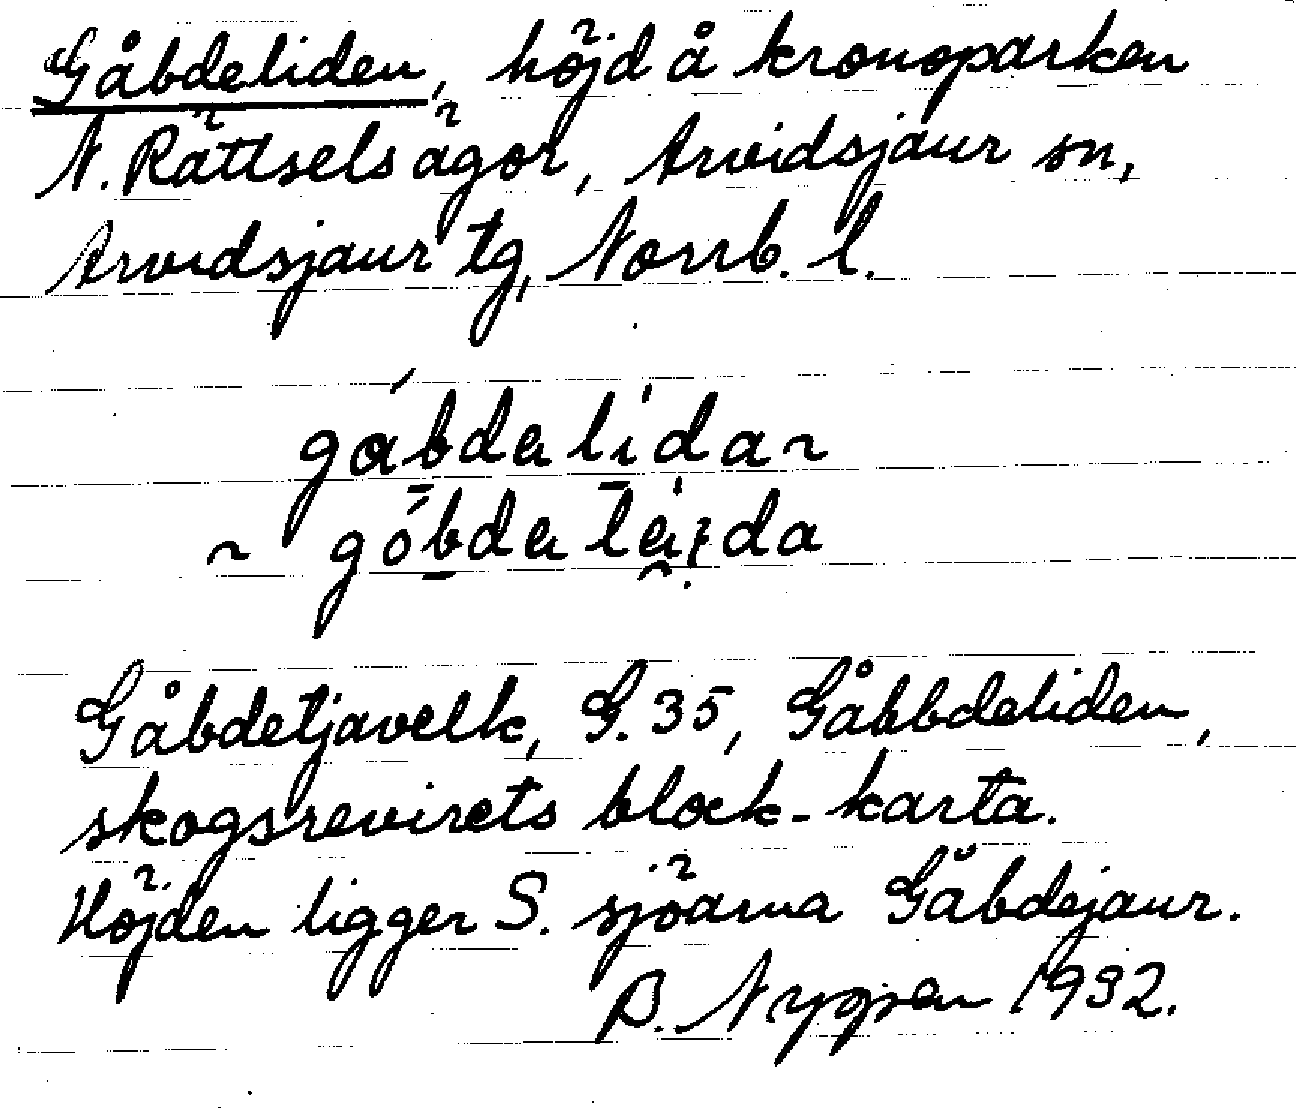 Gåbdeliden, höjd å kronoparken
N. Rättsels ägor, Arvidsjaur sn,
Arvidsjaur tg, Norrb. l.
gábdalida~
~ góbdaleida
Gåbdetjavelk, G. 35, Gåbbdeliden,
skogsrevirets block-karta.
Höjden ligger S. sjöarna Gåbdejaur.
1932.